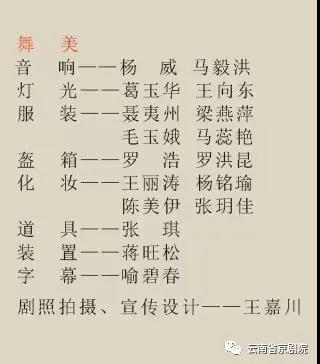 舞 美
音 响——杨 威 马毅洪
灯 光——葛玉华 王向东
服 装——聂夷州 梁燕萍
毛玉娥 马蕊艳
盔 箱——罗 浩 罗洪昆
化 妆——王丽涛 杨铭瑜
陈美伊 张玥佳
道 具——张 琪
装 置——蒋旺松
字 幕——喻碧春
剧照拍摄、宣传设计——王嘉川
云南省京剧院